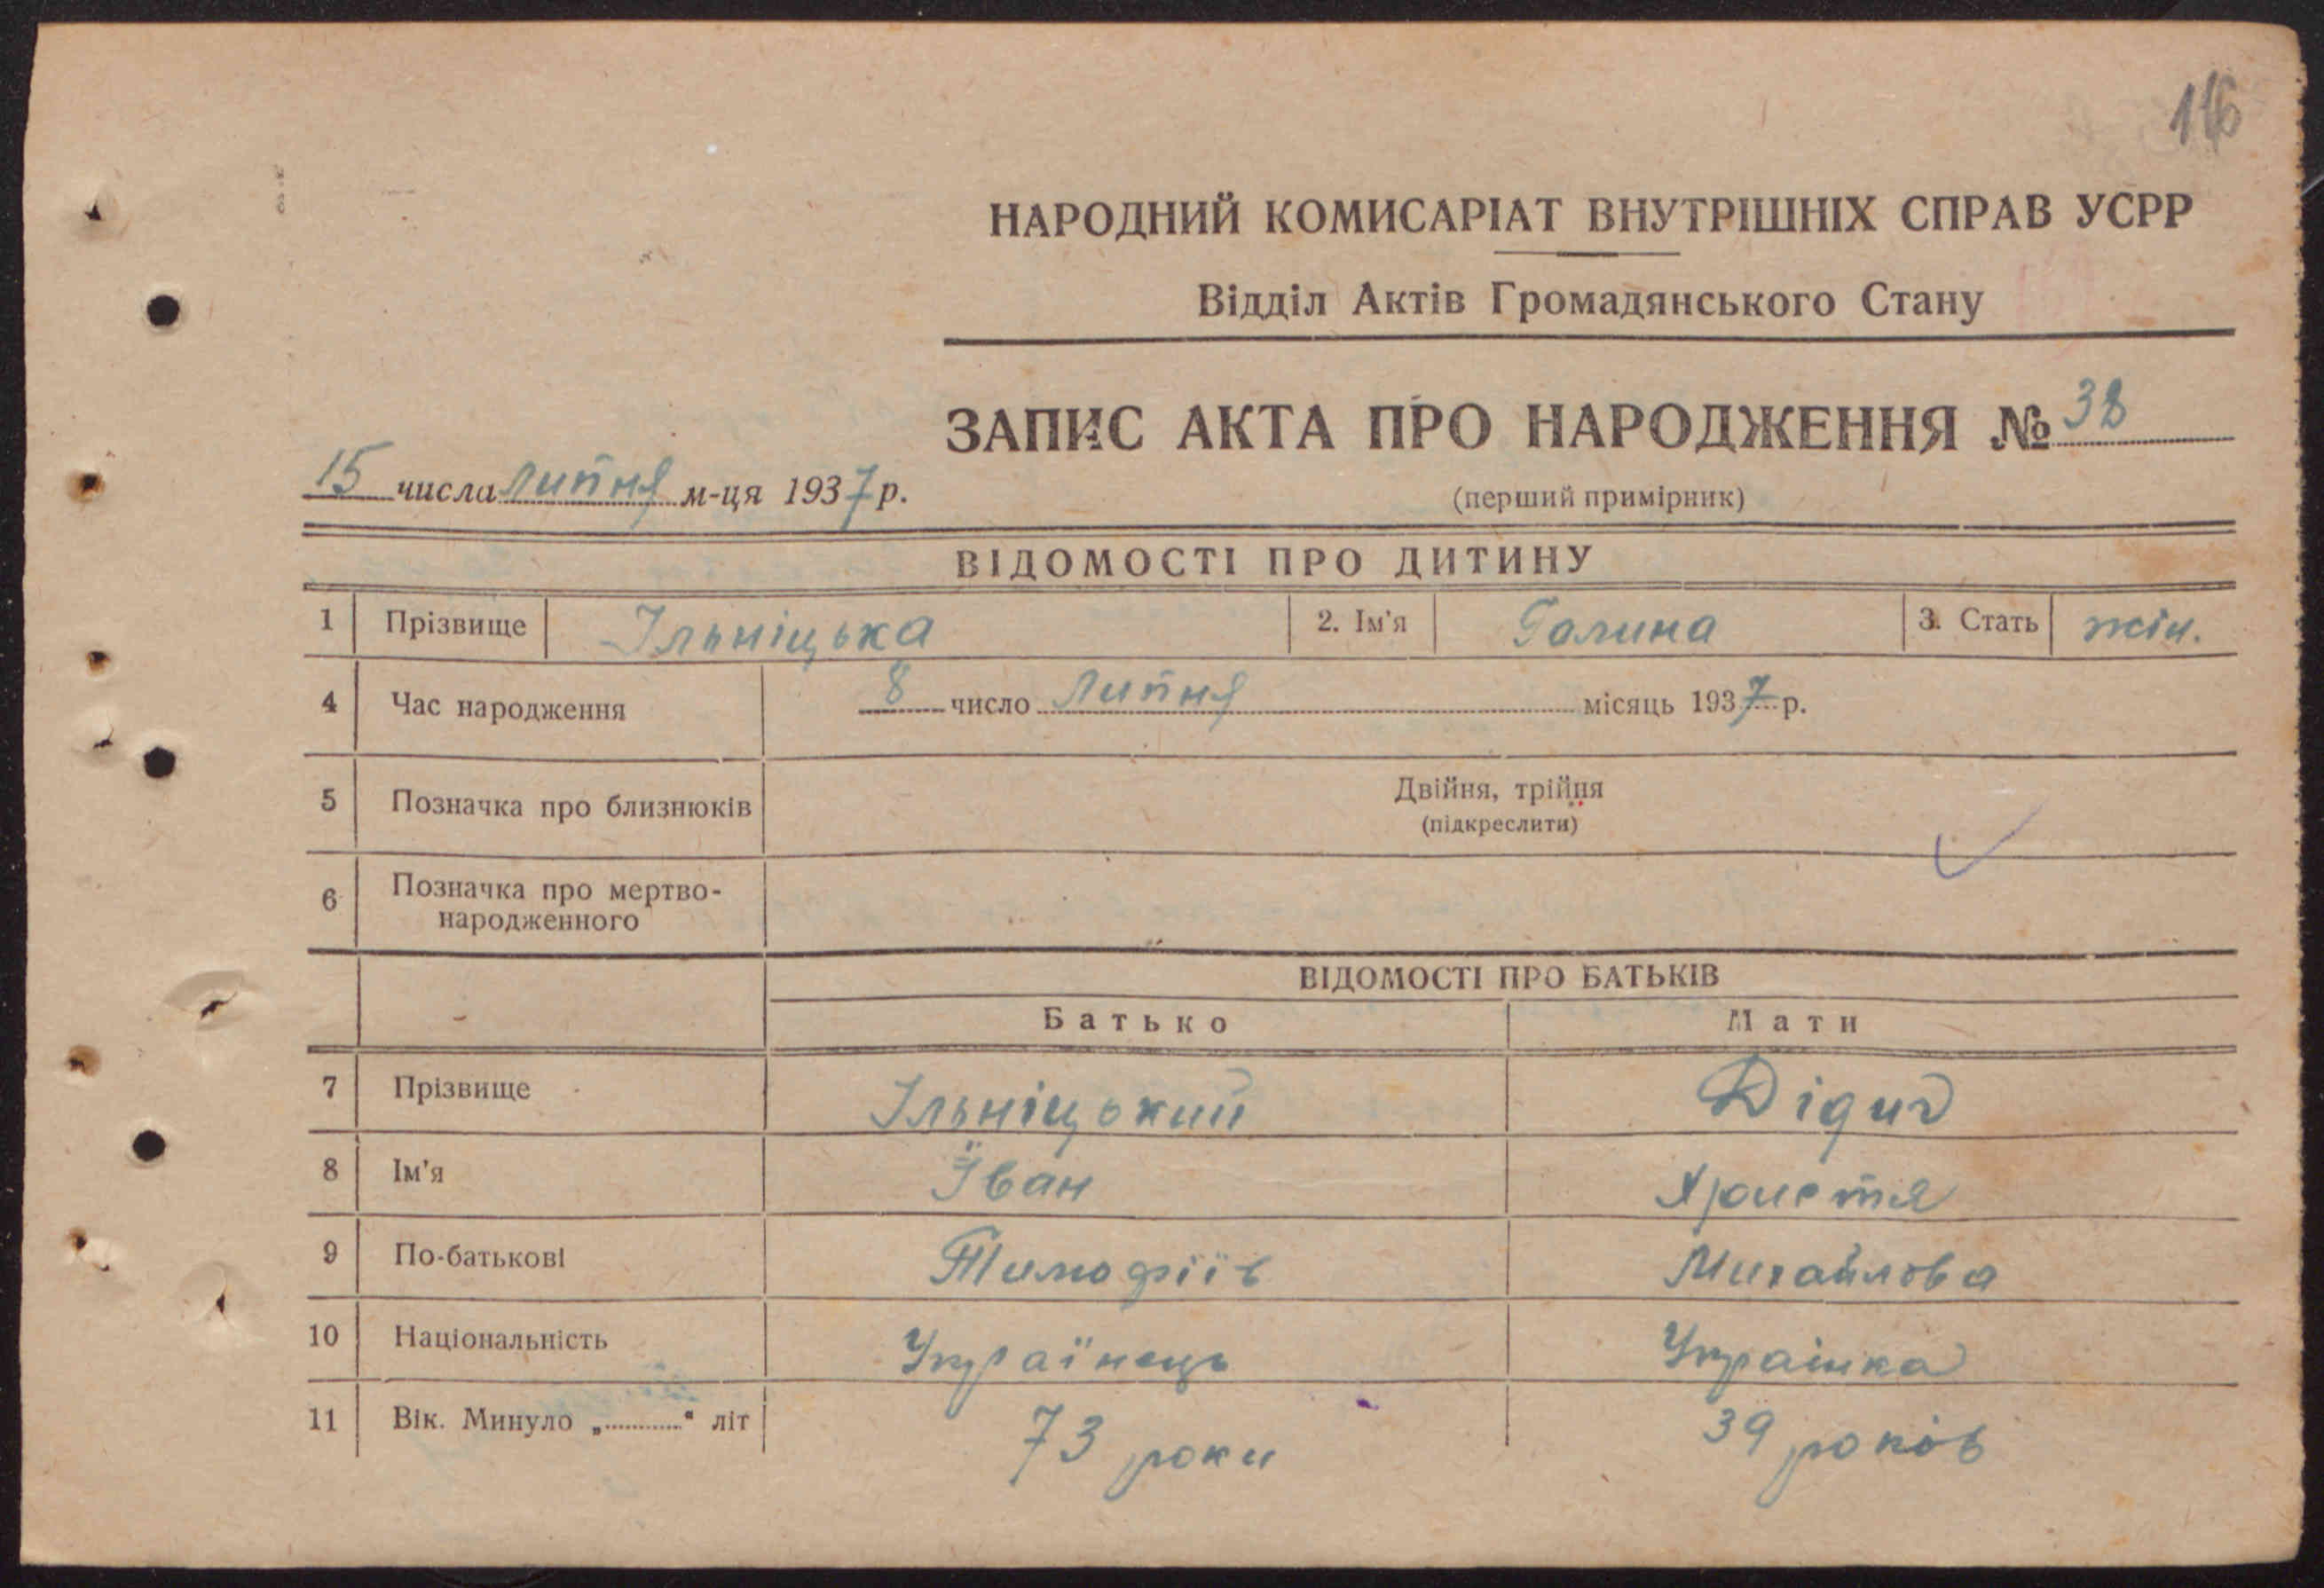 116
НАРОДНИЙ КОМИСАРІАТ ВНУТРІШНІХ СПРАВ УСРР
Відділ Актів Громадянського Стану
ЗАПИС АКТА ПРО НАРОДЖЕННЯ № 38
15 числа Липня м-ця 1937 р.
(перший примірник)
ВІДОМОСТІ ПРО ДИТИНУ
1 Прізвище Ільніцька 2. Ім'я Галина 3. Стать жін.
4 Час народження 8 число Липня місяць 1937 р.
5 Позначка про близнюків Двійня, трійня
(підкреслити)
6 Позначка про мертво-
народженного
ВІДОМОСТІ ПРО БАТЬКІВ
Батько Мати
7 Прізвище Ільніцький Дідич
8 Ім'я Іван Христя
9 По-батькові Тимофіїв Михайлова
10 Національність Українець Українка
11 Вік. Минуло „............" літ 73 роки 39 років